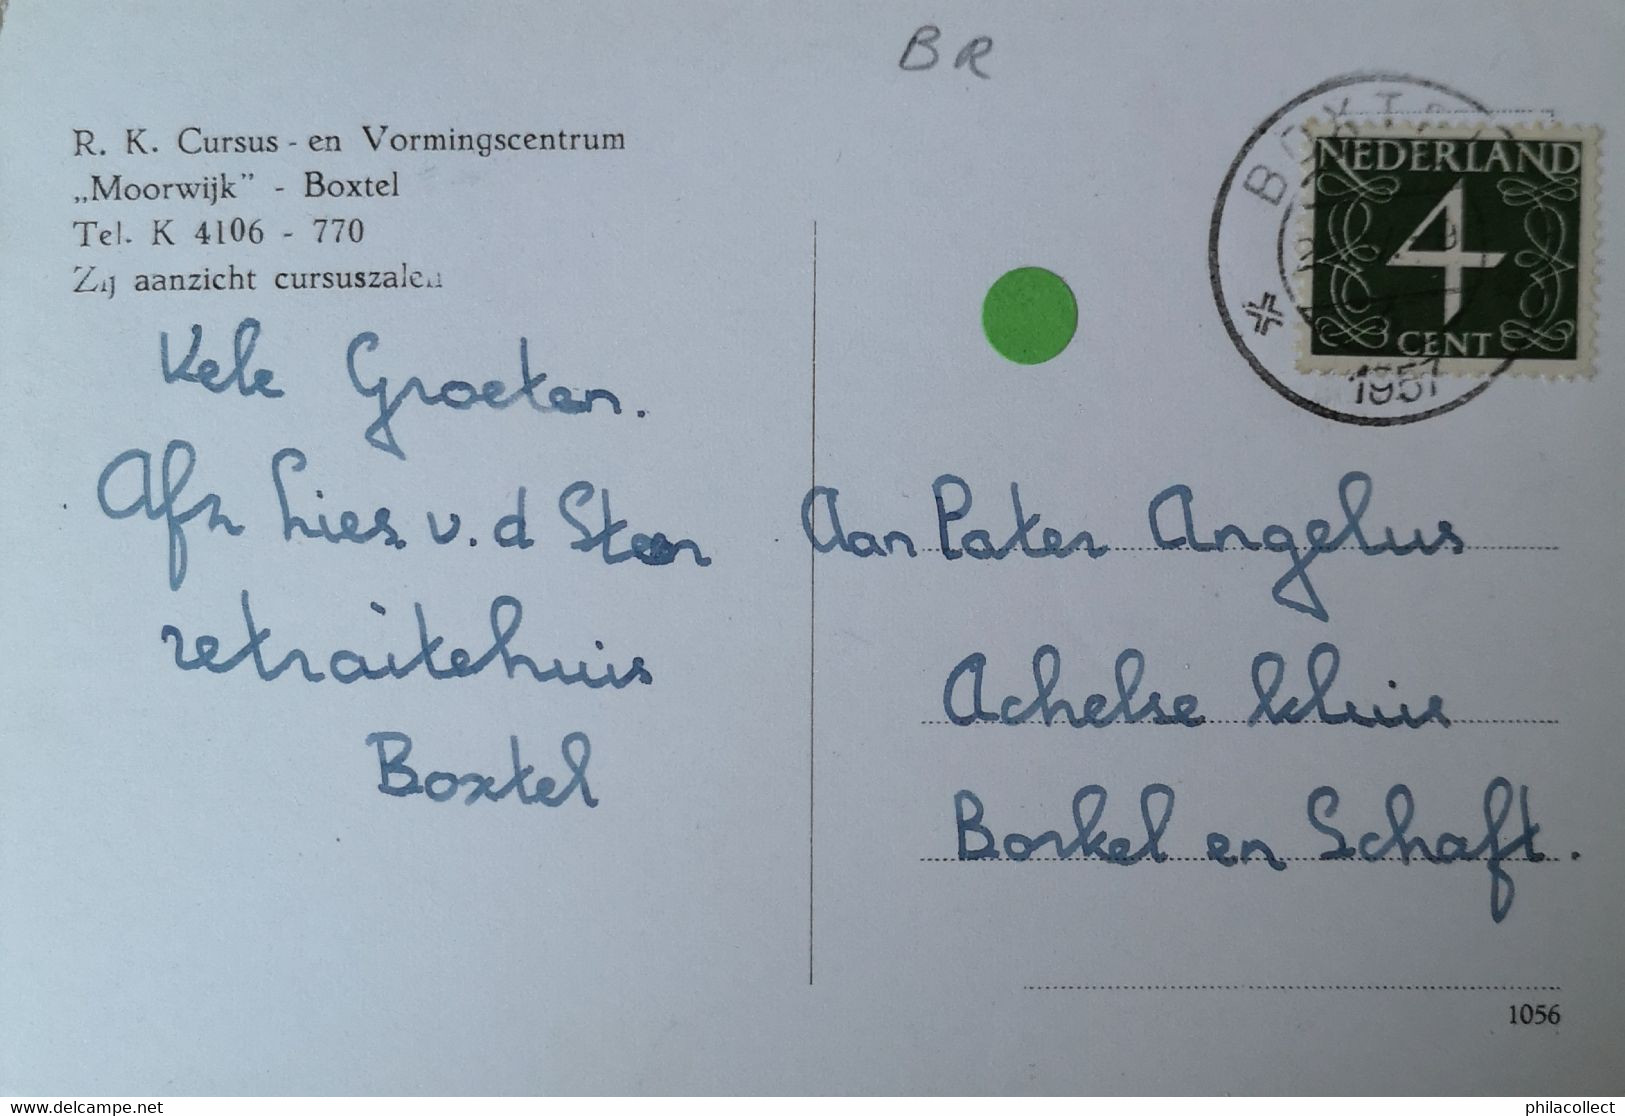 BR
R. K. Cursus - en Vormingscentrum
„Moorwijk” - Boxtel
Tel. K 4106 - 770
Zij aanzicht cursuszalen
BOXTEL
1957
NEDERLAND
4
CENT
Vele Groeten.
Afz Lies v.d Steen
retraitehuis
Boxtel
Aan Pater Angelus
Achelse kluis
Borkel en Schaft.
1056
delcampe.net
philacollect